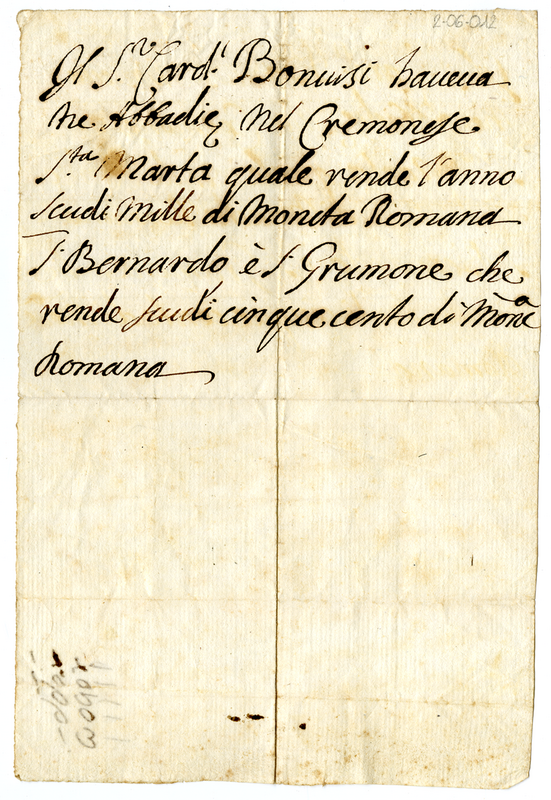 2-06-012
Il S.r Card.l Bonuisi haueua
tre Abbadie nel Cremonese
S.ta Marta quale rende l'anno
scudi Mille di Moneta Romana
S. Bernardo è S. Grumone che
rende scudi cinquecento di Mone.a
Romana